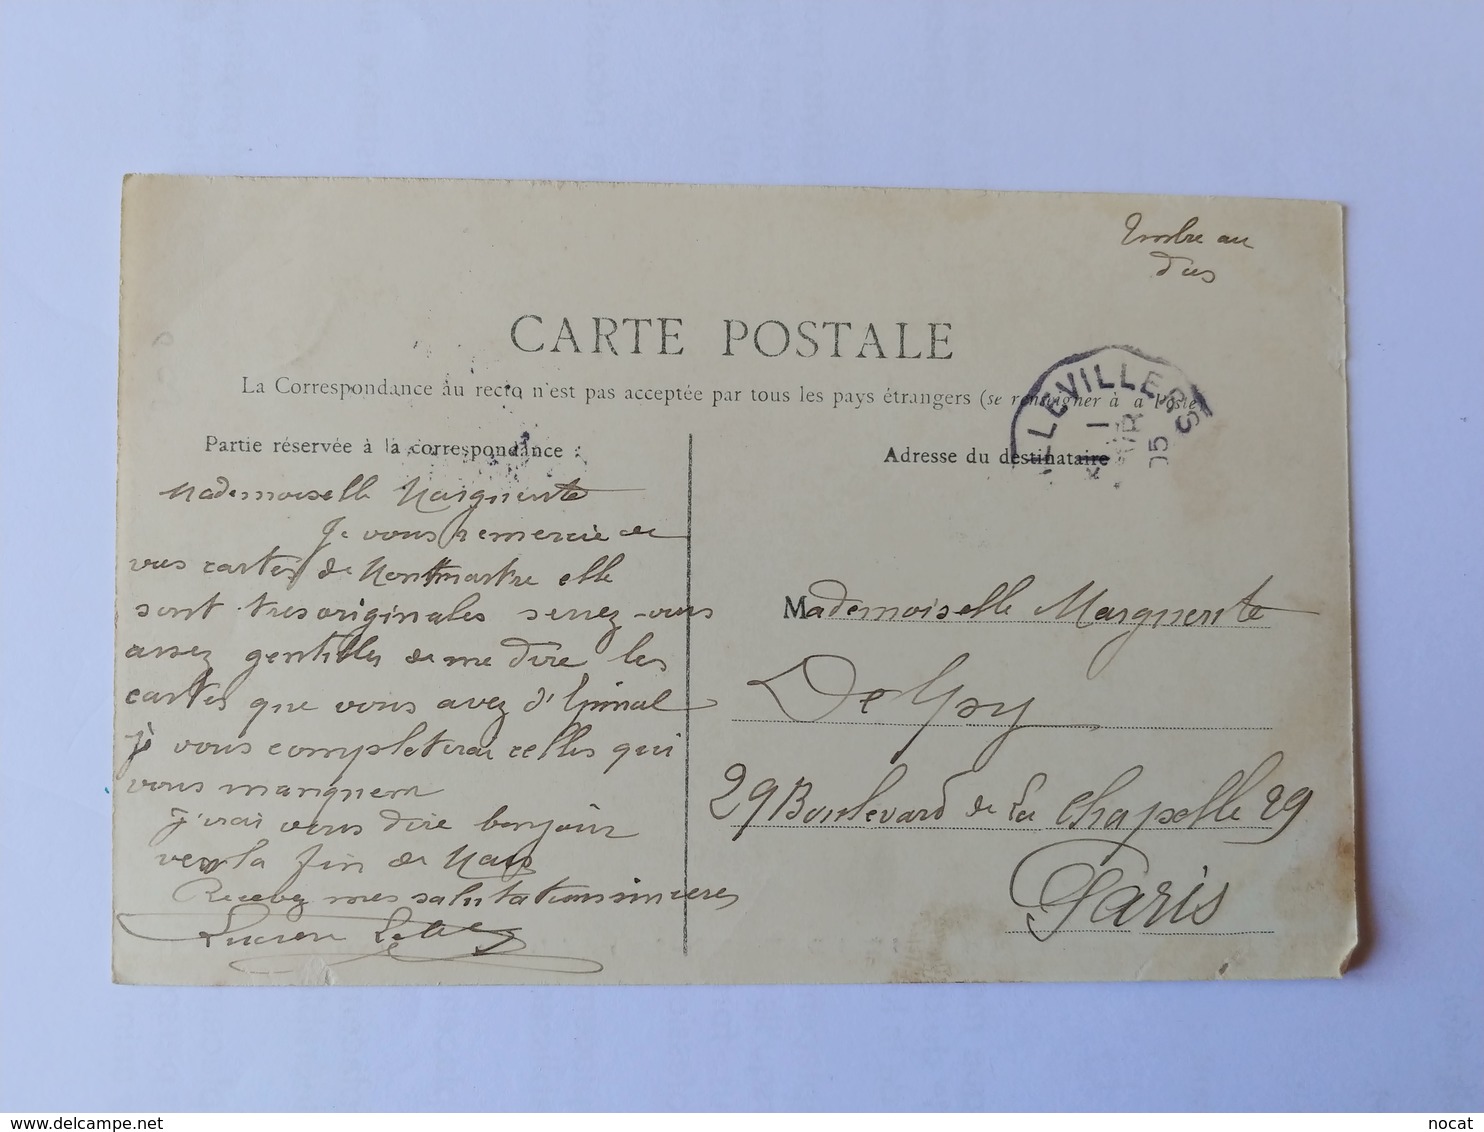 Timbre au
dos
CARTE POSTALE
La Correspondance au recto n'est pas acceptée par tous les pays étrangers (se renseigner à a Poste)
LLEVILLERS
1
05
Partie réservée à la correspondance :
Adresse du destinataire
Mademoiselle Marguerite
Je vous remercie de
vos cartes de Montmartre elle
sont tres originales serrez-vous
assez gentilles de me dire les
cartes que vous avez d'Epinal
je vous completerai celles qui
vous manquent
J'irai vous dire bonjour
vers la fin de Mars
Recevez mes salutations sinceres
Lucien
Mademoiselle Marguerite
Delpy
29 Boulevard de La Chapelle 29
Paris
nocat